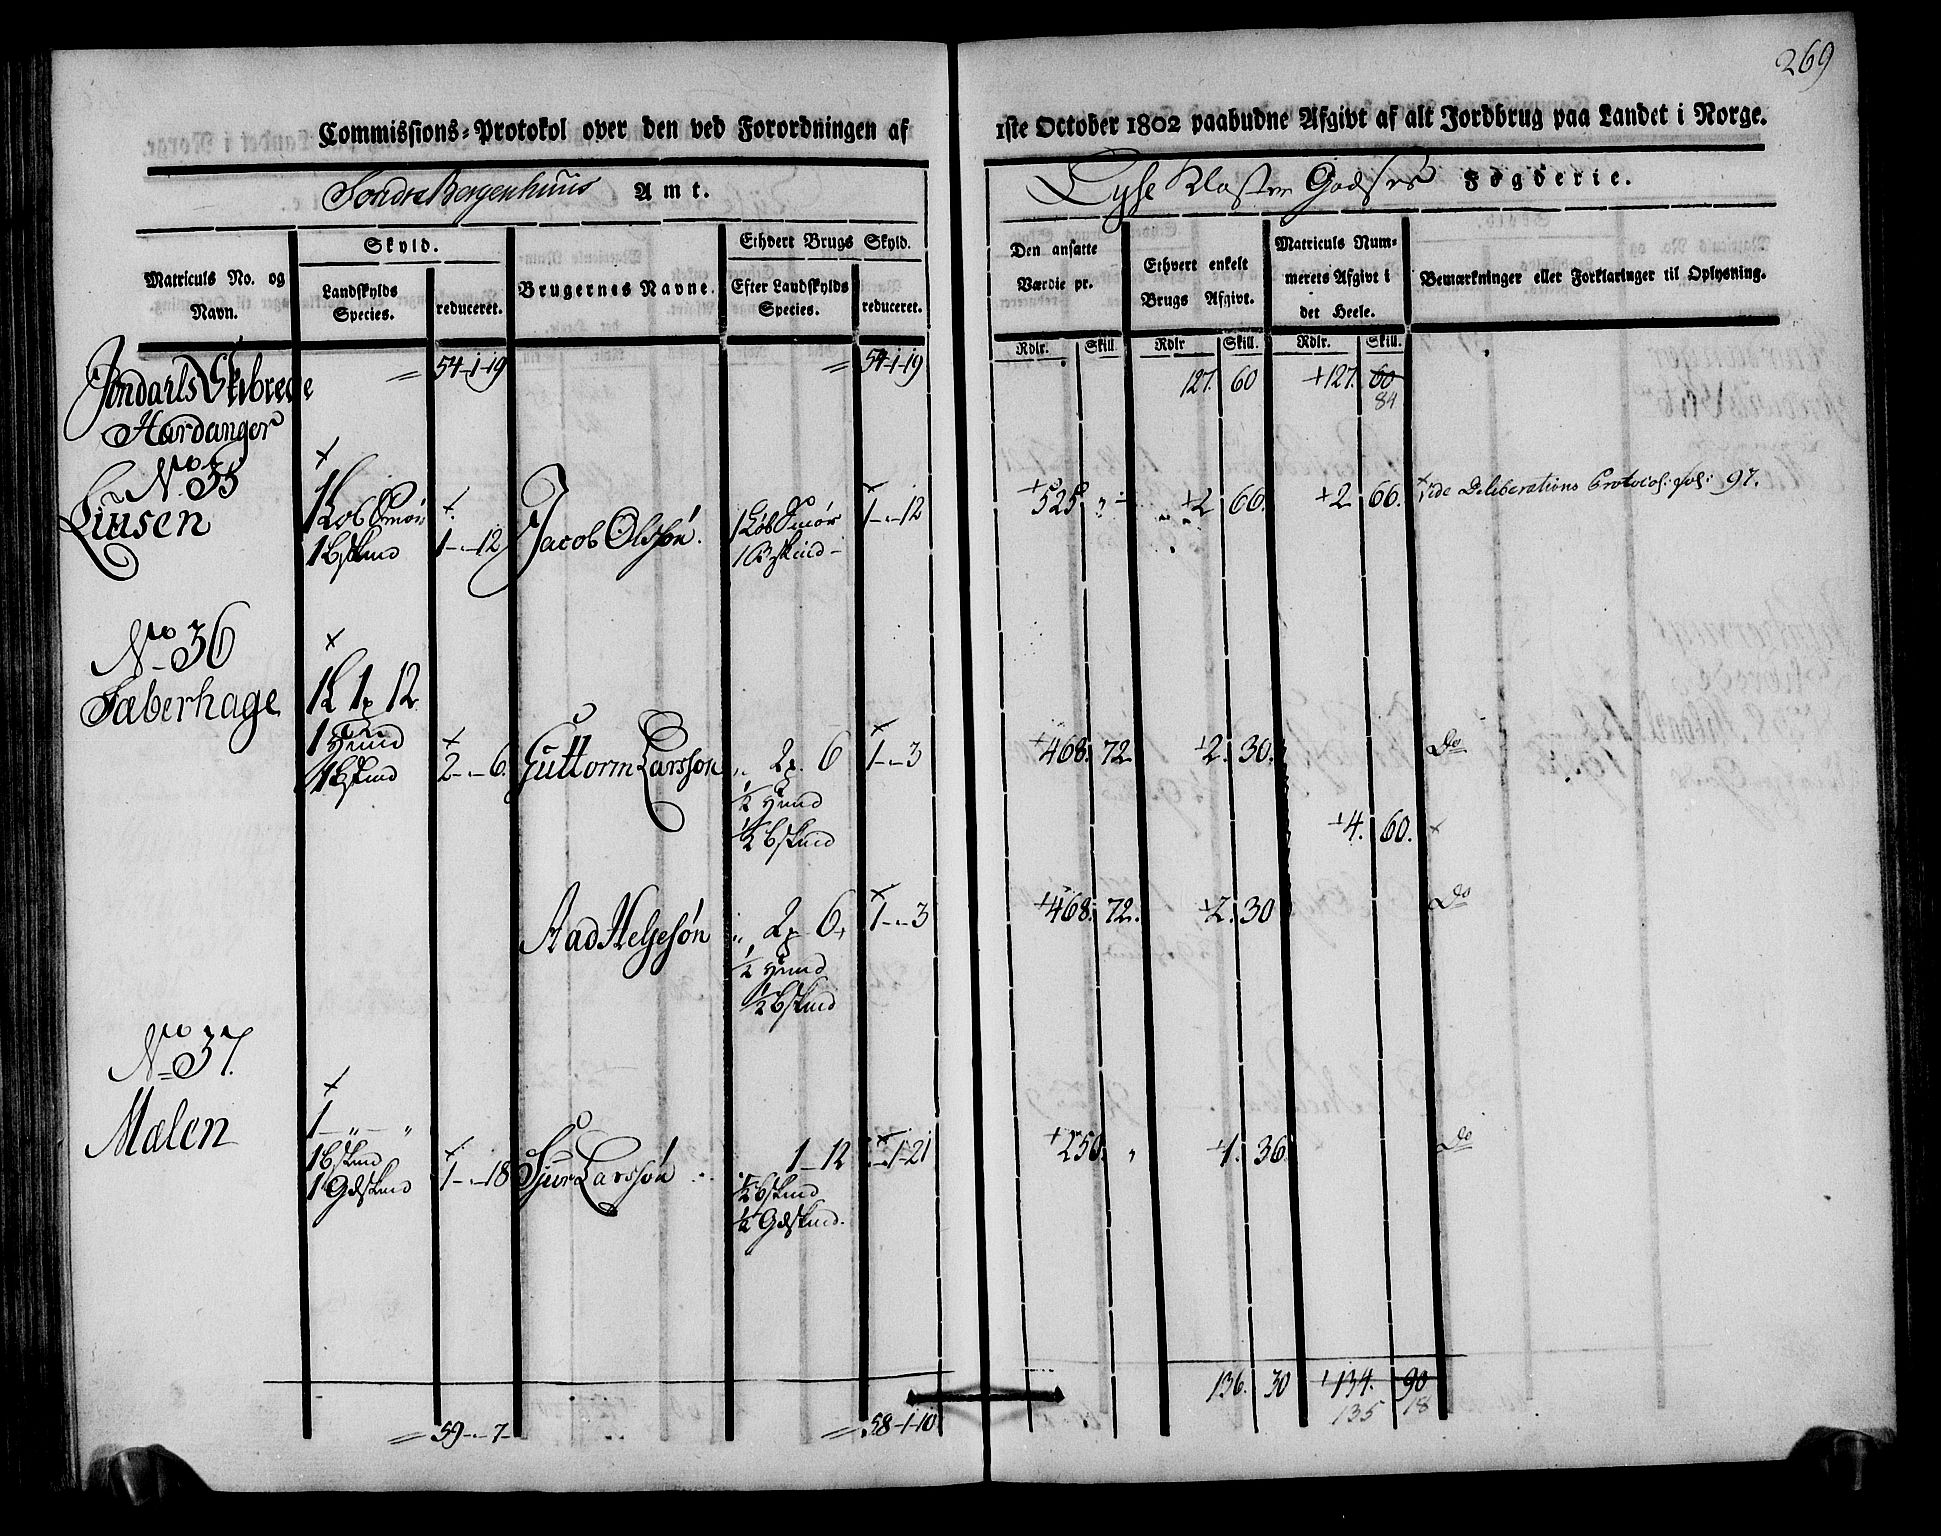 269
Commissions-Protokol over den ved Forordningen af 1ste October 1802 paabudne Afgivt af alt Jordbrug paa Landet i Norge.
Söndre Bergenhuus Amt.
Lyse Kloster Godses Fogderie.
Matriculs No. og Navn.
Skyld.
Landskylds Species.
reduceret.
Brugernes Navne.
Ethvert Brugs Skyld.
Efter Landskylds Species.
reduceret.
Den ansatte Værdie pr.
Ethvert enkelt Brugs Afgivt.
Matriculs Nummerets Afgivt i det Heele.
Bemærkninger eller Forklaringer til Oplysning.
Rdlr. Skill. Rdlr Skill. Rdlr. Skill.
Jondahls Skibrede = 54-1-19 = 54-1-19 127. 60 +127. 60
84
Hardanger
No 35 +
Liusen 1 Løb Smør + Jacob Olssøn. 1 Løb Smør + 1-"-12 +525 " ±2 66. +2 66. Vide Deliberations Protocol: fol: 97.
1 Bskind 1-"-12 1 Bskind
No 36 +
Sæberhage 1L 1p 12
1 Hund +
1 Bskind 2-"-6 Guttorm Larssøn " 2p 6 + 1-"-3 +468. 72. ±2. 30. Do
½ Hund
½ Bskind ±4. 60. +
Aad Helgesøn " 2p 6 + 1-"-3 +468. 72. ±2. 30 Do
½ Hund
½ Bskind
No 37.
+
Mælen 1-"-"
1 Bskind +
1 Gdskind 1-"-18 Siur Larssøn 1-12 + "-1-21 +250. " ±1. 36. Do
½ Bskind
½ Gdskind.
136. 30 +134. 90
135 18
= 59-"-7- = 58-1-10